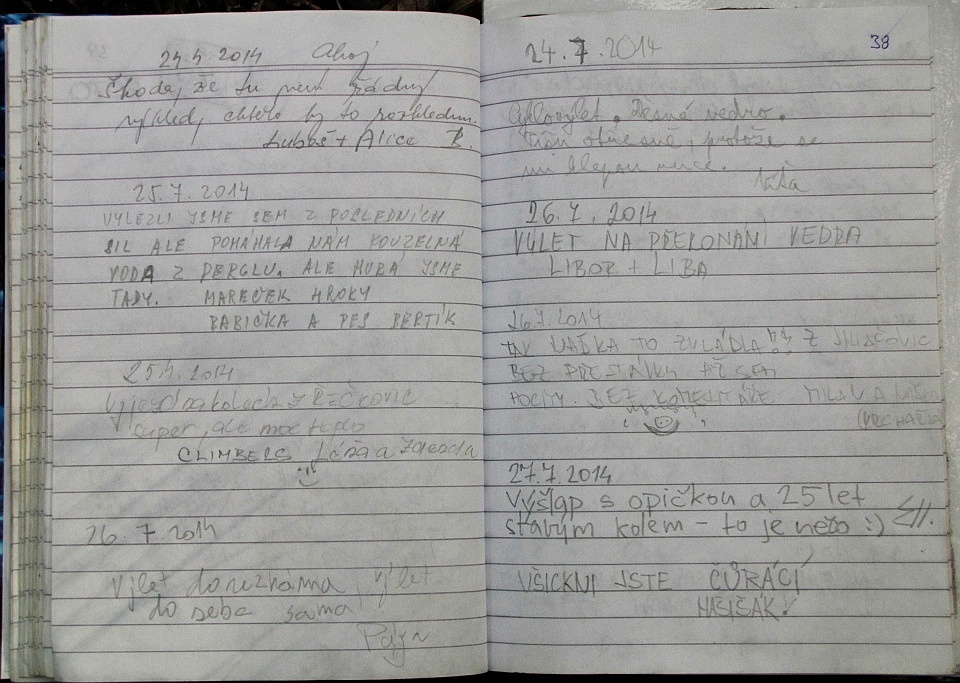 24.7.2014 Ahoj
Škoda, že tu není žádný
výhled, chtělo by to rozhlednu.
Luboš + Alice B.
25.7.2014
VYLEZLI JSME SEM Z POSLEDNÍCH
SIL ALE POMÁHALA NÁM KOUZELNÁ
VODA Z PERGLU. ALE HURÁ JSME
TADY. MAREČEK HROKY
BABIČKA A PES BERTÍK
25.7.2014
Výjezd na kolech z Řečkovic
super, ale moc teplo
CLIMBERS Láďa a
26.7 2014
Výlet do neznáma, výlet
do sebe sama
Pája
38
24.7.2014
Cyklovýlet. Děsné vedro.
otřesně, protože se
mi klepou ruce.
Táňa
26.7.2014
VÝLET NA PŘEKONÁNÍ VEDRA
LIBOR + LIBA
26.7.2014
TAK VAŠKA TO ZVLÁDLA!!! Z
BEZ PŘESTÁVKY AŽ SEM
POCITY. BEZ KOMENTÁŘE. MILAN A
27.7.2014
Výšlap s opičkou a 25 let
starým kolem - to je něco :)
VŠICKNI JSTE ČŮRÁCÍ
HAŠIŠÁK!